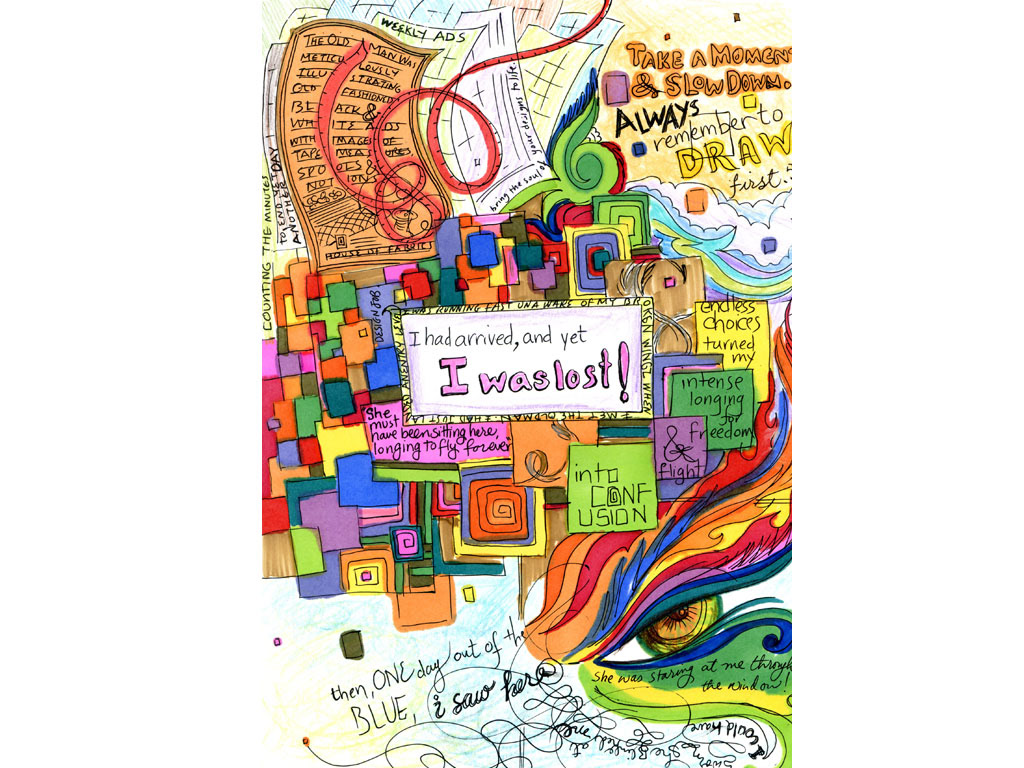 WEEKLY ADS
THE OLD MAN WAS
METICULOUSLY
ILLUSTRATING
OLD FASHIONED
BLACK &
WHITE ADS
WITH IMAGES OF
TAPE MEASURES
SPOOLS &
NOTIONS
HOUSE OF FABRICS
COUNTING THE MINUTES
TO END YE DAY
ANOTHER
bring the soul of your designs to life.
TAKE A MOMENT
& SLOW DOWN.
ALWAYS
remember to
DRAW
first.
DESIGN JOB
I WAS RUNNING FAST UN A WAKE OF MY BROKEN WINGZ WHEN
I MET THE OLD MAN. I HAD JUST LANDED AN ENTRY LEVEL
I had arrived, and yet
I was lost!
endless
choices
turned
my
intense
longing
for
freedom
&
flight
into
CONF
USION
She
must
have been sitting here,
longing to fly forever
then, ONE day out of the
BLUE, i saw here
She was staring at me through
the window!
I could have
sworn
she blinked at
me